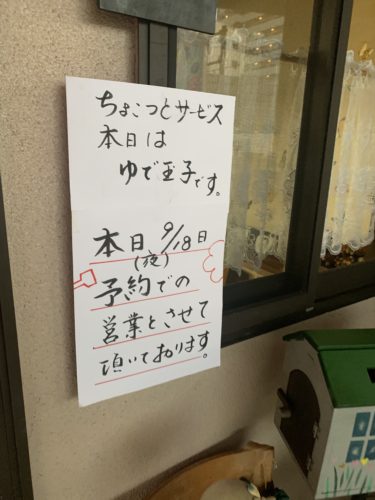 ちょこっとサービス
本日は
ゆで玉子です。
本日9/18日
(夜)
予約での
営業とさせて
頂いております。